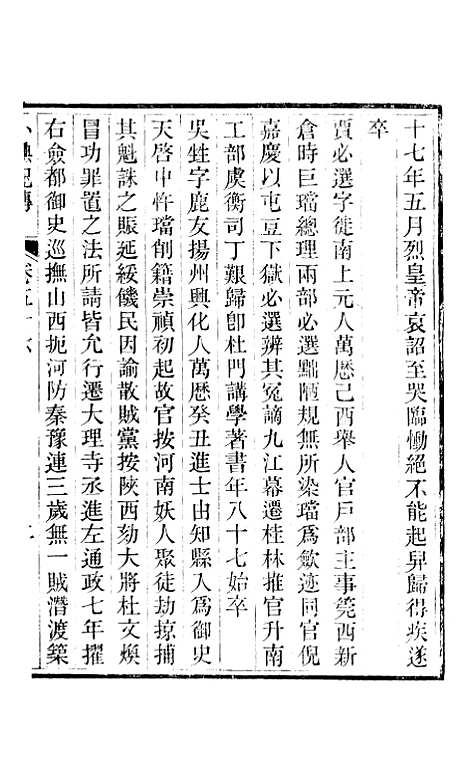 十七年五月烈皇帝哀詔至哭臨慟絕不能起舁歸得疾遂
卒
賈必選字徙南上元人萬歷己酉舉人官戶部主事筦西新
倉時巨璫總理兩部必選黜陋規無所染璫爲歛迹同官倪
嘉慶以屯豆下獄必選辨其冤謫九江幕遷桂林推官升南
工部虞衡司丁艱歸卽杜門講學著書年八十七始卒
吳甡字鹿友揚州興化人萬歷癸丑進士由知縣入爲御史
天啓中忤璫削籍崇禎初起故官按河南妖人聚徒劫掠捕
其魁誅之賑延綏饑民因諭散賊黨按陝西劾大將杜文煥
冒功罪置之法所請皆允行遷大理寺丞進左通政七年擢
右僉都御史巡撫山西扼河防秦豫連三歲無一賊潛渡築
小腆紀傳
卷五十六